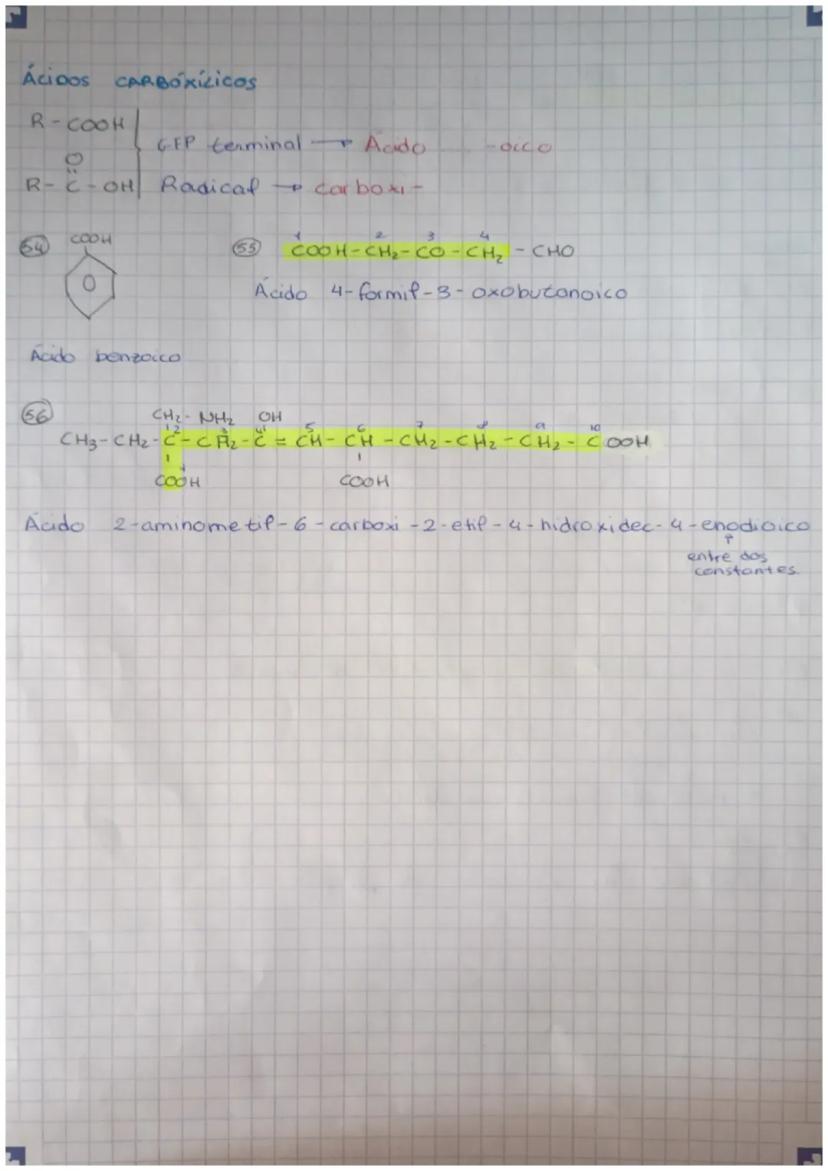 ÁCIDOS CARBÓXÍLICOS
R - COOH
GFP terminal → Ácido -oico
O
R - C - OH Radical → carboxi-
54 COOH
O
Ácido benzoico
55
1 2 3 4
COOH - CH2 - CO - CH2 - CHO
Ácido 4-formil-3-oxobutanoico
56
CH2 - NH2 OH
1 2 3 4 5 6 7 8 9 10
CH3 - CH2 - C - CH2 - C = CH - CH - CH2 - CH2 - CH2 - COOH
COOH COOH
Ácido 2-aminometil-6-carboxi-2-etil-4-hidroxidec-4-enodioico
↑
entre dos
constantes